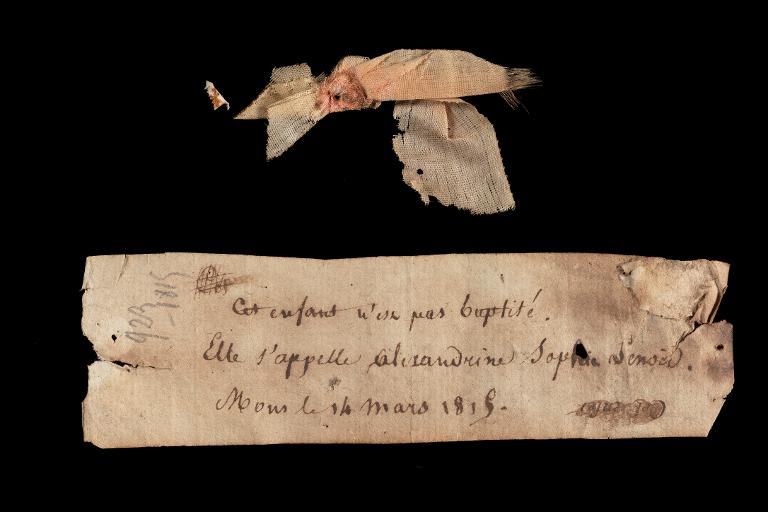 923
-1815
Cet enfant n'est pas baptité.
Elle s'appelle Alexandrine Sophie
Mons le 14 mars 1815.